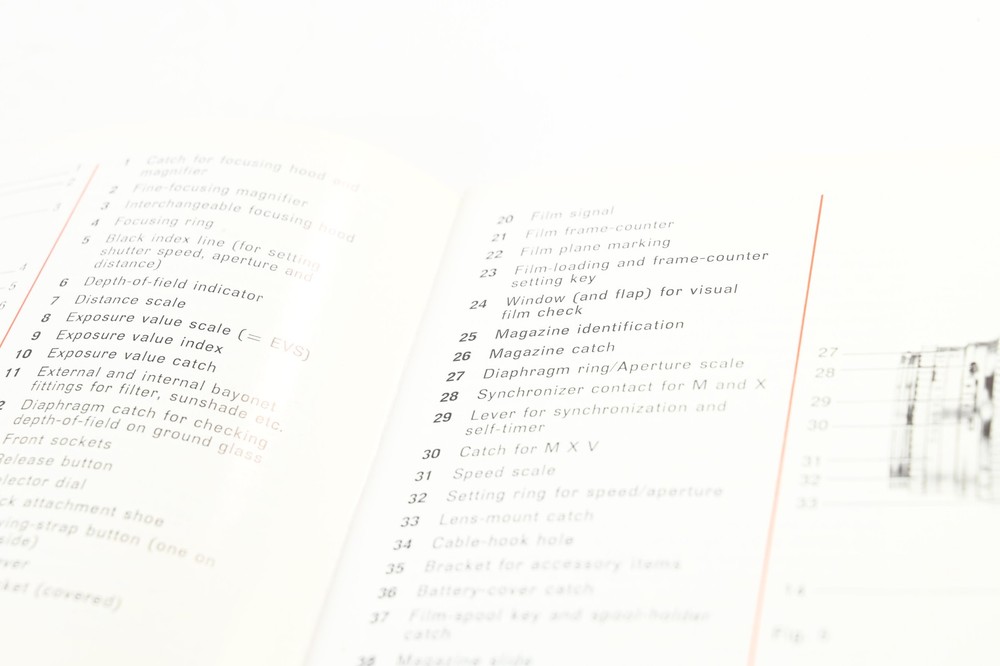 1 Catch for focusing hood and
magnifier
2 Fine-focusing magnifier
3 Interchangeable focusing hood
4 Focusing ring
5 Black index line (for setting
shutter speed, aperture and
distance)
6 Depth-of-field indicator
7 Distance scale
8 Exposure value scale (= EVS)
9 Exposure value index
10 Exposure value catch
11 External and internal bayonet
fittings for filter, sunshade etc.
2 Diaphragm catch for checking
depth-of-field on ground glass
Front sockets
Release button
lector dial
ck attachment shoe
ying-strap button (one on
side)
ver
ket (covered)
20 Film signal
21 Film frame-counter
22 Film plane marking
23 Film-loading and frame-counter
setting key
24 Window (and flap) for visual
film check
25 Magazine identification
26 Magazine catch
27 Diaphragm ring/Aperture scale
28 Synchronizer contact for M and X
29 Lever for synchronization and
self-timer
30 Catch for M X V
31 Speed scale
32 Setting ring for speed/aperture
33 Lens-mount catch
34 Cable-hook hole
35 Bracket for accessory items
36 Battery-cover catch
37 Film-spool key and spool-holder
catch
38 Magazine slide
27
28
29
30
31
32
33
Fig.